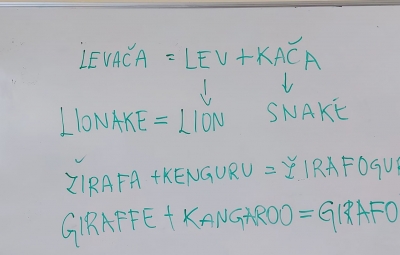 LEVAČA = LEV + KAČA
↓ ↓
LIONAKE = LION SNAKE
ŽIRAFA + KENGURU = ŽIRAFOGUR
GIRAFFE + KANGAROO = GIRAFO